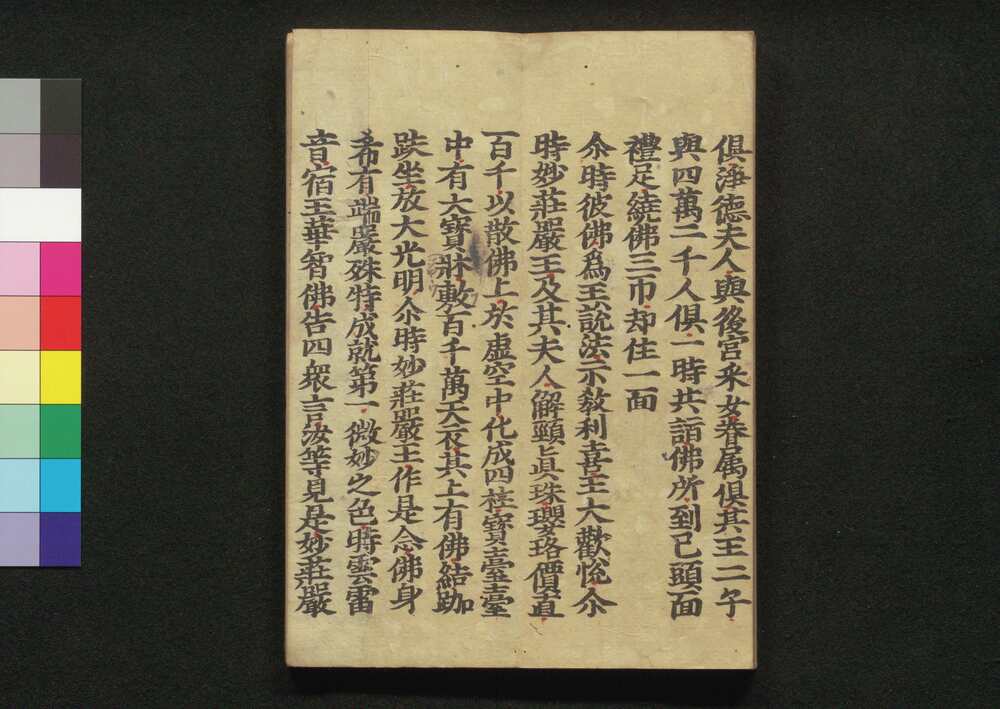 俱淨德夫人與後宮采女眷属俱其王二子
與四萬二千人俱一時共詣佛所到已頭面
禮足繞佛三帀却住一面
尒時彼佛爲王說法示敎利喜王大歡悅尒
時妙莊嚴王及其夫人解頸眞珠瓔珞價直
百千以散佛上於虛空中化成四柱寶臺臺
中有大寶牀敷百千萬天衣其上有佛結跏
趺坐放大光明尒時妙莊嚴王作是念佛身
希有端嚴殊特成就第一微妙之色時雲雷
音宿王華智佛告四衆言汝等見是妙莊嚴